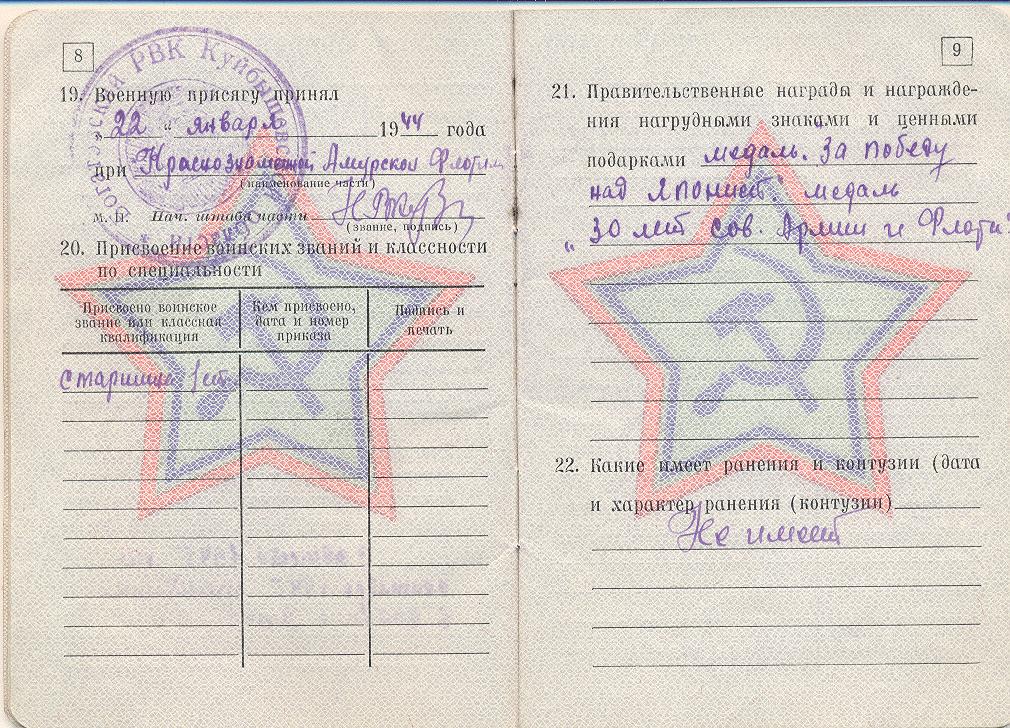 8
19. Военную присягу принял
„22 " января 1944 года
при Краснознаменной Амурской Флотил
(наименование части)
М. П. Нач. штаба части
(звание, подпись)
20. Присвоение воинских званий и классности
по специальности
Присвоено воинское звание или классная квалификация
Кем присвоено, дата и номер приказа
Подпись и печать
Старшина 1 ст.
РВК Куйбышевс
9
21. Правительственные награды и награжде-
ния нагрудными знаками и ценными
подарками медаль. "За победу
над Японией." медаль
„30 лет сов. Армии и Флота"
22. Какие имеет ранения и контузии (дата
и характер ранения (контузии)
Не имеет